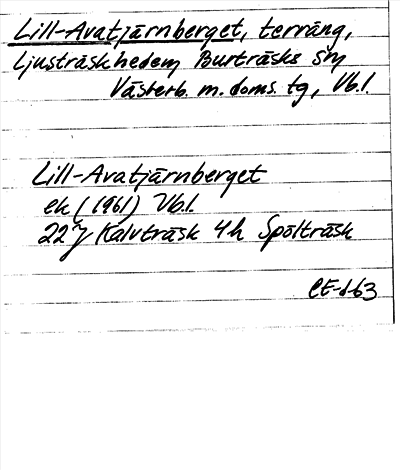 Lill-Avatjärnberget, terräng,
Ljusträskhedem Burträsks sn
Västerb. m. doms. tg, Vb.l.
Lill-Avatjärnberget
ek (1961) Vb.l.
22 J Kalvträsk 4h Spölträsk
CE-d-63